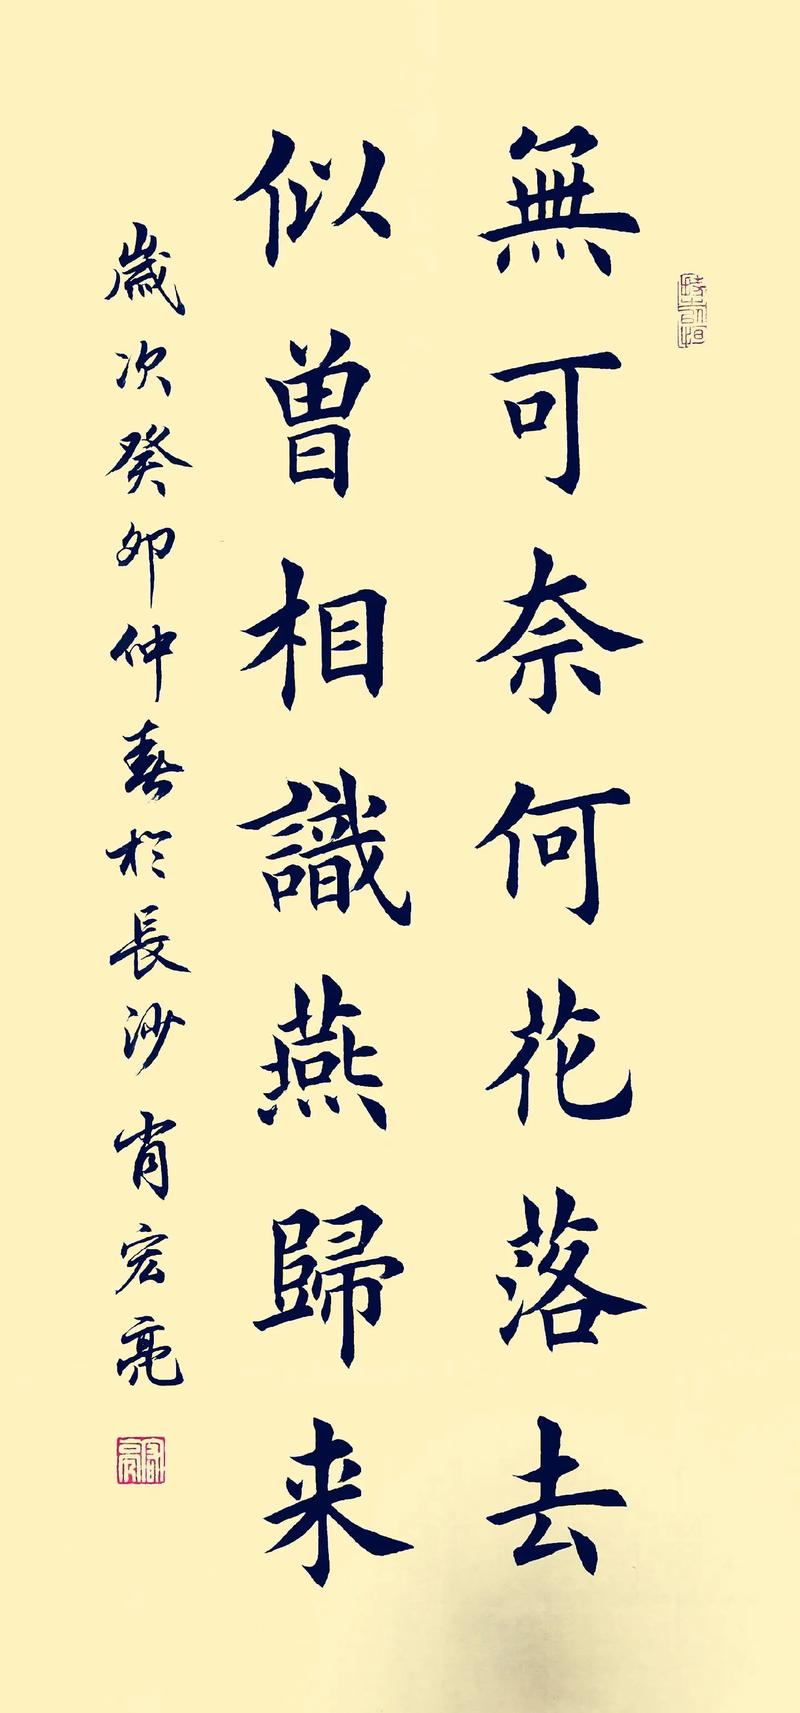 無可奈何花落去
似曾相識燕歸来
歲次癸卯仲春於長沙肖宏亮